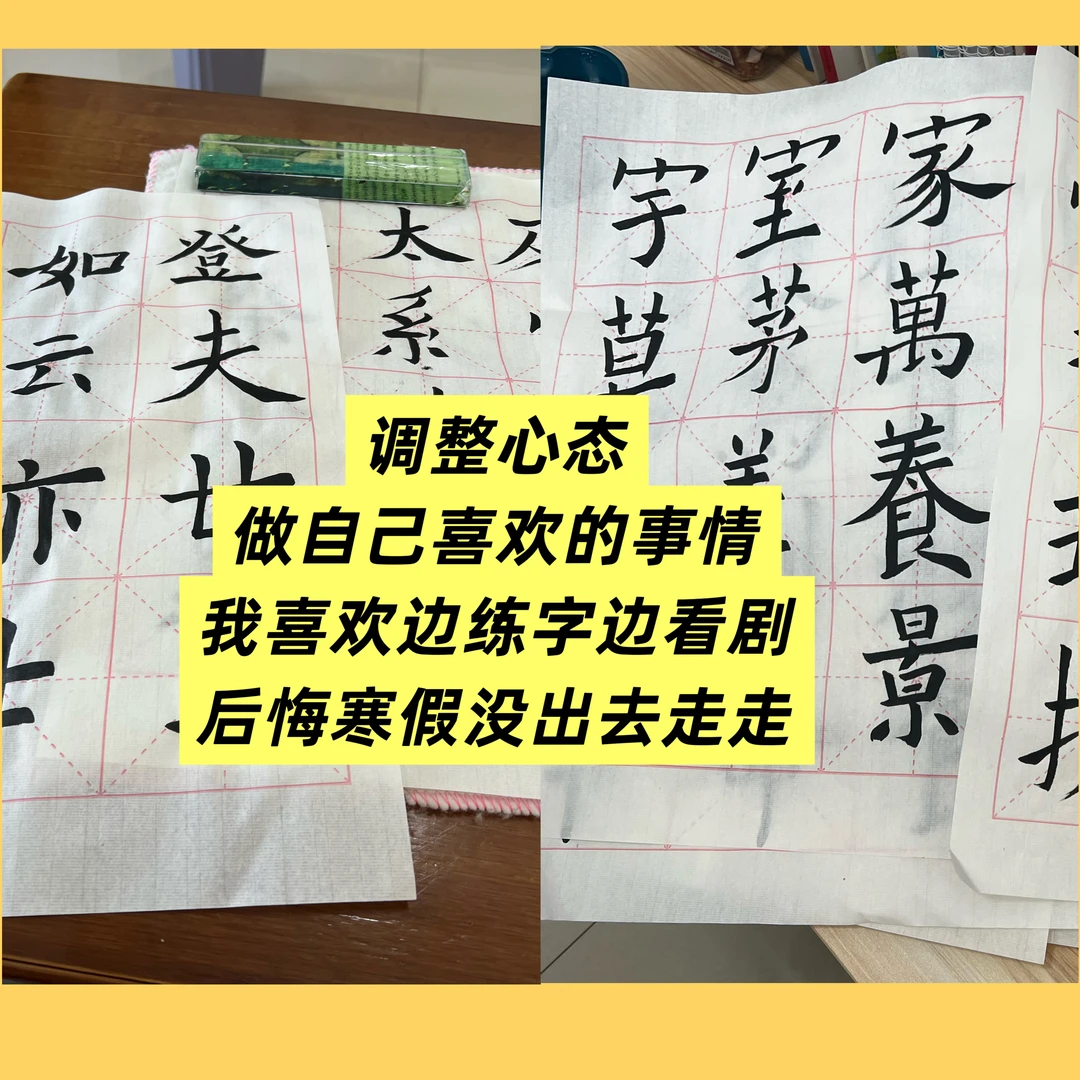 调整心态
做自己喜欢的事情
我喜欢边练字边看剧
后悔寒假没出去走走
登夫廿
如云亦
太系
家萬養景
室茅
字草